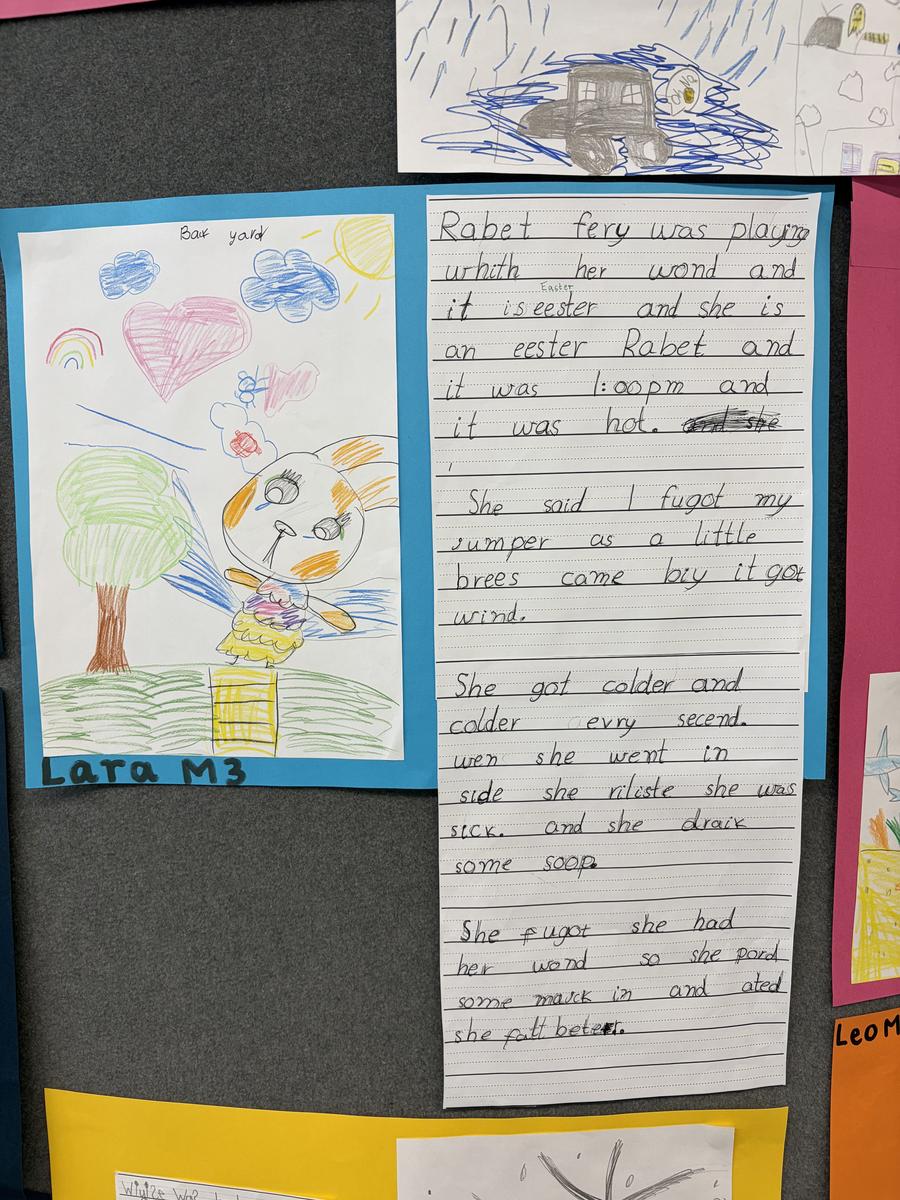 Oh No
Back yard
Lara M3
Rabet fery was playing
whith her wond and
Easter
it is eester and she is
an eester Rabet and
it was 1:00pm and
it was hot. and she
She said I fugot my
jumper as a little
brees came biy it got
wind.
She got colder and
colder evry secend.
wen she went in
side she riliste she was
sick. and she draik
some soop.
She fugot she had
her wond so she pord
some mauck in and ated
she fatt beter.
Leo M